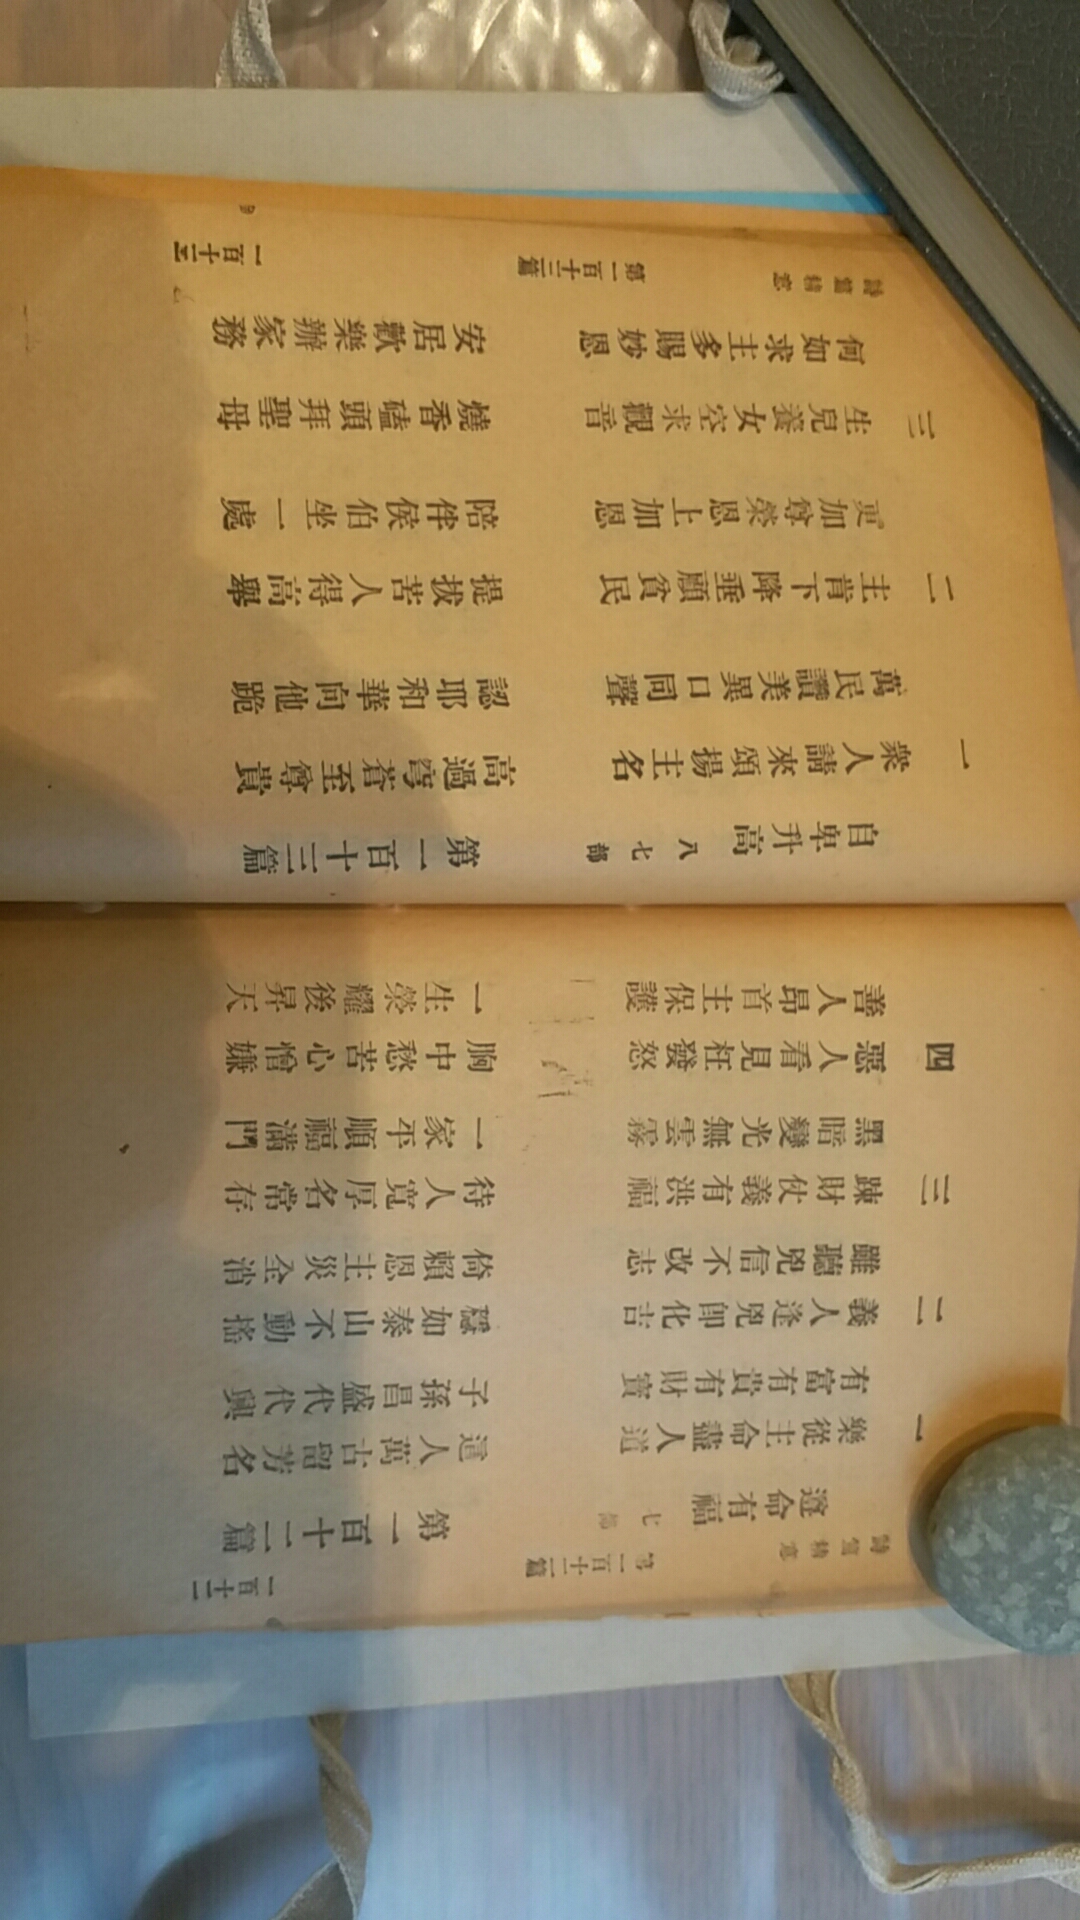 詩篇精意 第一百十二篇 一百十二
遵命有福 七部 第一百十二篇
一 樂從主命盡人道 這人萬古留芳名
有富有貴有財寶 子孫昌盛代代興
二 義人逢兇卽化吉 穩如泰山不動搖
雖聽兇信不改志 倚賴恩主災全消
三 踈財仗義有洪福 待人寬厚名常存
黑暗變光無雲霧 一家平順福滿門
四 惡人看見枉發怒 胸中愁苦心憎嫌
善人昂首主保護 一生榮耀後昇天
自卑升高 八七部 第一百十三篇
一 衆人請來頌揚主名 高過穹蒼至尊貴
萬民讚美異口同聲 認耶和華向他跪
二 主肯下降垂顧貧民 提拔苦人得高舉
更加尊榮恩上加恩 陪伴侯伯坐一處
三 生兒養女空求觀音 燒香磕頭拜聖母
何如求主多賜妙恩 安居歡樂辦家務
詩篇精意 第一百十三篇 一百十三